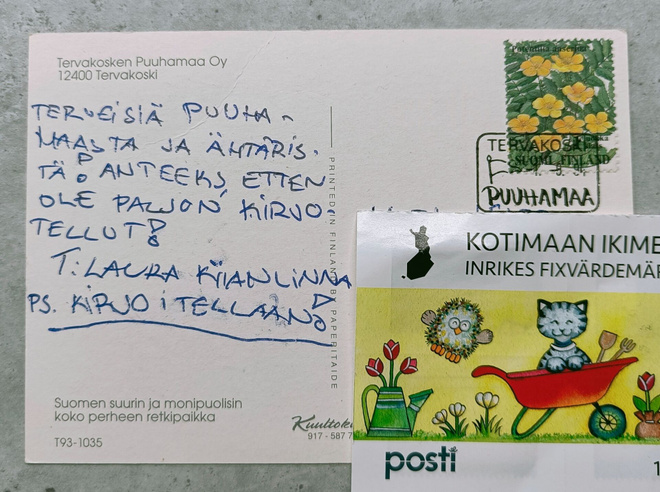 Tervakosken Puuhamaa Oy
12400 Tervakoski
TERVEISIÄ PUUHA-
MAASTA JA ÄHTÄRIS-
TÄ! ANTEEKS, ETTEN
OLE PALJON KIRJO-
TELLUT!
T: LAURA KIIANLINNA
PS. KIRJOITELLAAN!
Suomen suurin ja monipuolisin
koko perheen retkipaikka
T93-1035
PRINTED IN FINLAND BY PAPERITAIDE
Kuultoku
917 - 587 7
Potentilla anserina
SUOMI FINLAND
TERVAKOSKI
PUUHAMAA
KOTIMAAN IKIME
INRIKES FIXVÄRDEMÄR
posti
1